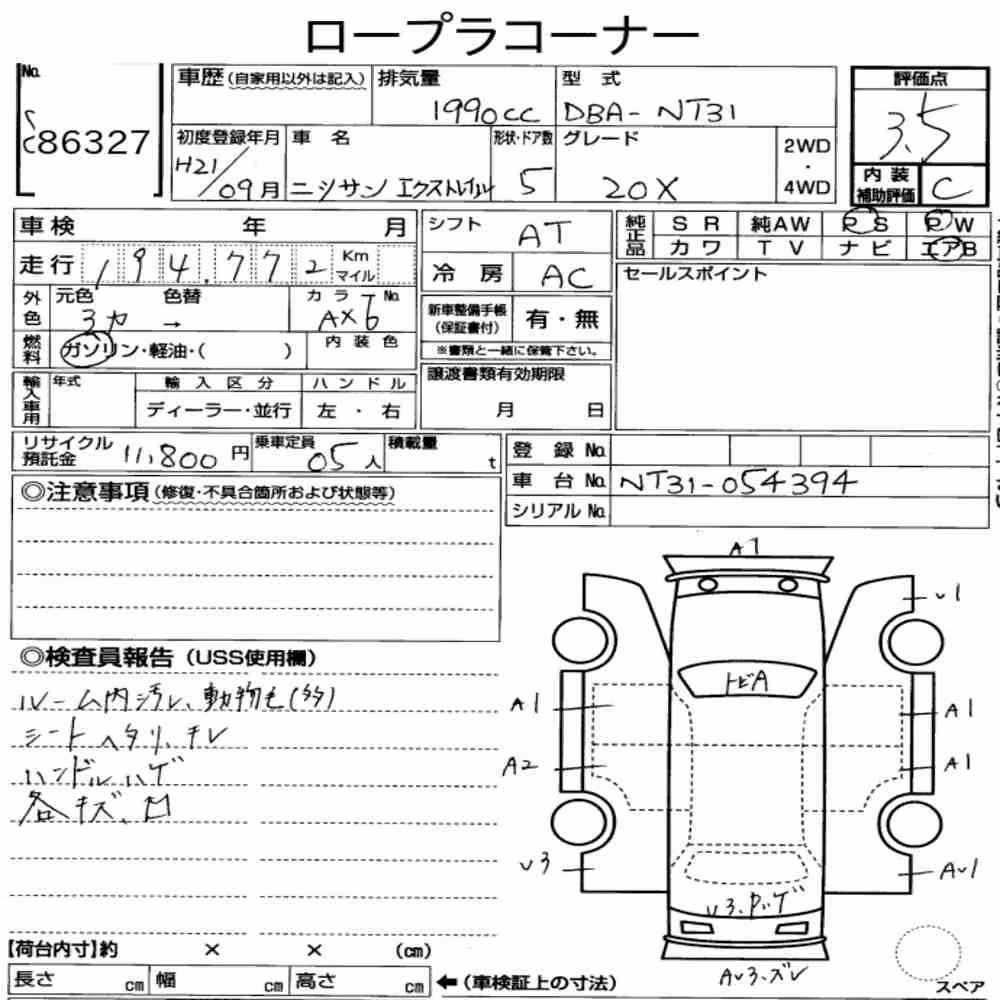 ロープラコーナー
No. 86327
車歴(自家用以外は記入) 排気量 1990cc 型式 DBA-NT31
評価点 3.5
初度登録年月 H21/09月 車名 ニシサン エクストレイル 形状・ドア数 5 グレード 20X 2WD・4WD
内装補助評価 C
車検 年 月 シフト AT
純正品 SR 純AW PS PW
カワ TV ナビ エアB
走行 194,772 Km マイル 冷房 AC
セールスポイント
外色 元色 3カ 色替 → カラーNo. AX6
新車整備手帳(保証書付) 有・無
※書類と一緒に保管下さい。
燃料 ガソリン・軽油・( ) 内装色
譲渡書類有効期限 月 日
輸入車用 年式 輸入区分 ハンドル
ディーラー・並行 左・右
リサイクル預託金 11,800円 乗車定員 05人 積載量 t
登録No.
車台No. NT31-054394
シリアルNo.
◎注意事項(修復・不具合箇所および状態等)
◎検査員報告(USS使用欄)
ルーム内汚レ、動物毛(多)
シートヘタリ、チレ
ハンドルハゲ
各キズ、凹
A1
v1
トビA
A1 A1
A2 A1
v3 Av1
v3、P、ゲ
Av3、ズレ
スペア
【荷台内寸】約 × × (cm)
長さ cm 幅 cm 高さ cm ←(車検証上の寸法)